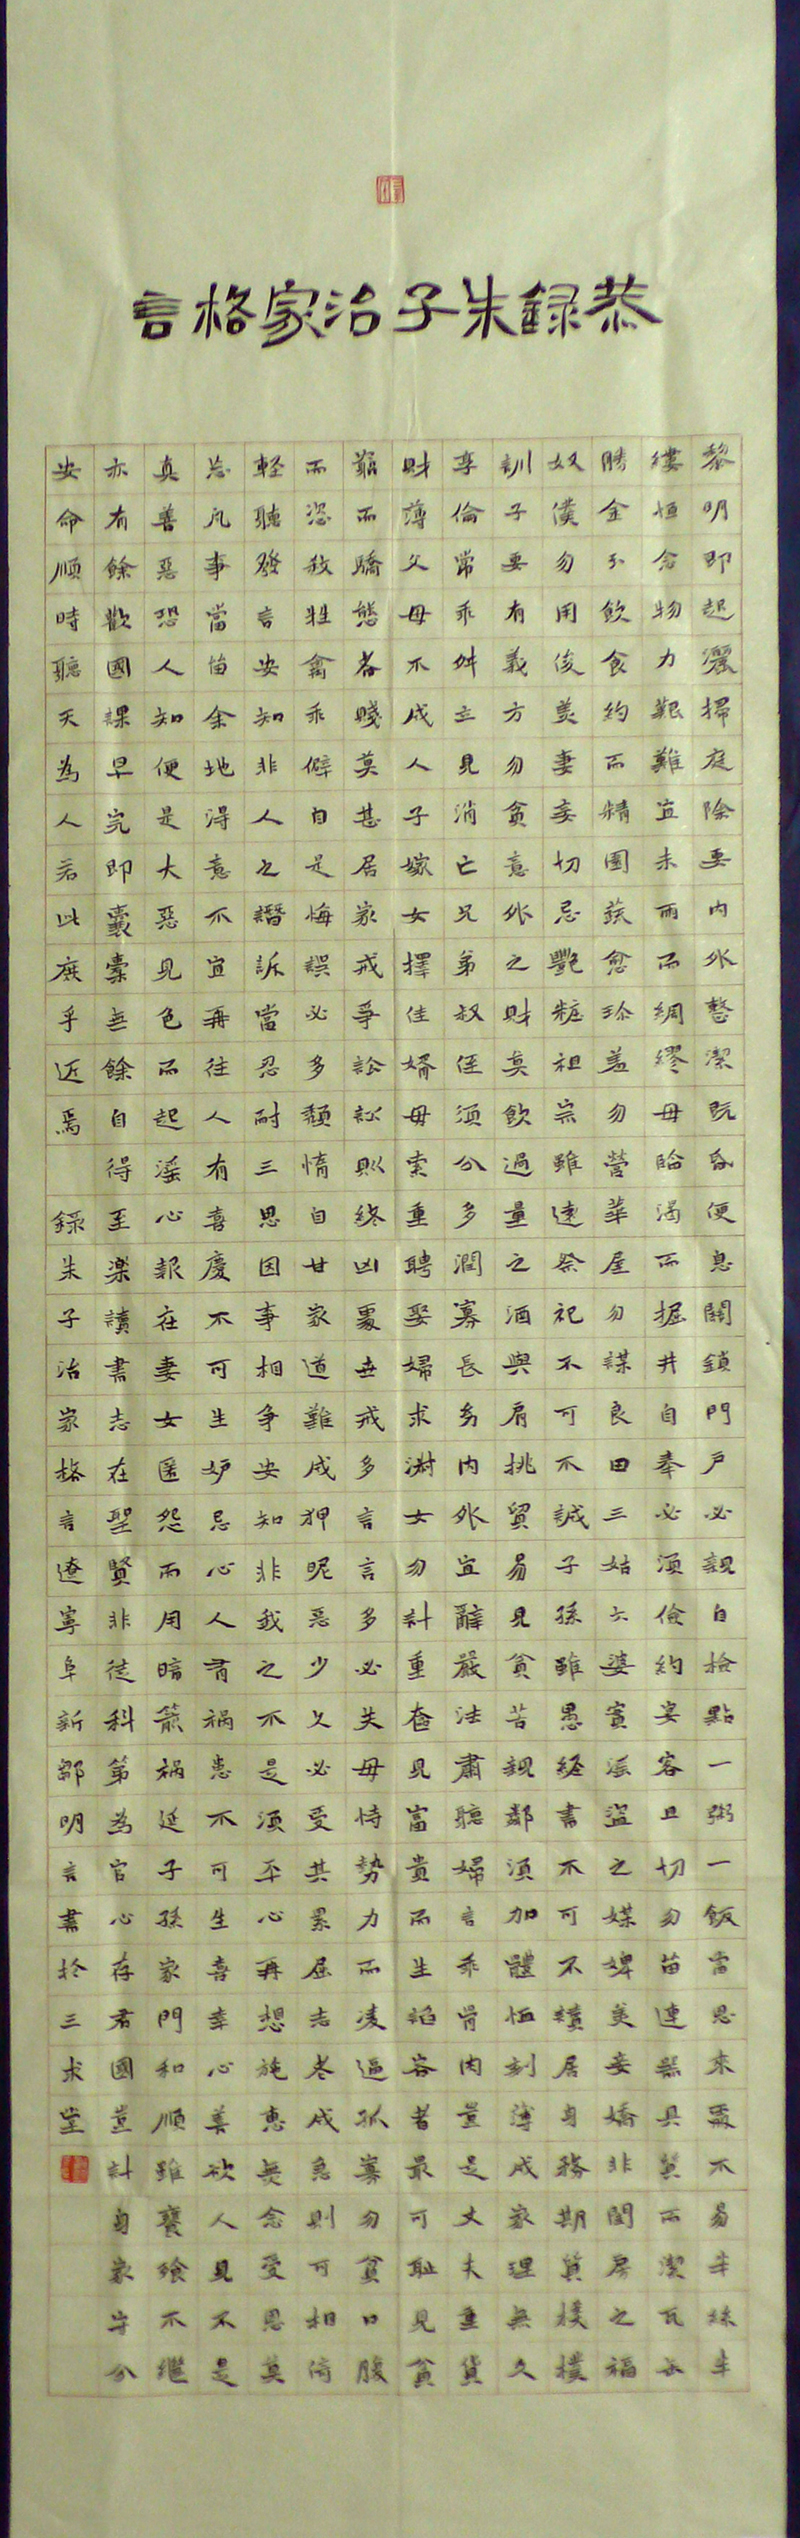 恭録朱子治家格言
黎明即起灑掃庭除要内外整潔既昏便息關鎖門户必親自檢點一粥一飯當思來處不易半絲半
縷恒念物力艱難宜未雨而綢繆毋臨渴而掘井自奉必須儉約宴客且切勿留連器具質而潔瓦缶
勝金玉飲食約而精園蔬愈珍羞勿營華屋勿謀良田三姑六婆實滛盜之媒婢美妾嬌非閨房之福
奴僕勿用俊美妻妾切忌艷粧祖宗雖遠祭祀不可不誠子孫雖愚經書不可不讀居身務期質樸樸
訓子要有義方勿貪意外之財莫飲過量之酒與肩挑貿易見貪苦親鄰須加體恤刻薄成家理無久
享倫常乖舛立見消亡兄弟叔侄須分多潤寡長幼内外宜辭嚴法肅聽婦言乖骨肉豈是丈夫重貨
財薄父母不成人子嫁女擇佳婿毋索重聘娶婦求淑女勿計重奩見富貴而生諂容者最可恥見貧
窮而驕態者賤莫甚居家戒爭訟訟則終凶處世戒多言言多必失毋恃勢力而凌逼孤寡勿貪口腹
而恣殺牲禽乖僻自是悔誤必多頹惰自甘家道難成狎昵惡少久必受其累屈志老成急則可相倚
輕聽發言安知非人之譖訴當忍耐三思因事相爭安知非我之不是須平心再想施惠無念受恩莫
忘凡事當留余地得意不宜再往人有喜慶不可生妒忌心人有禍患不可生喜幸心美欲人見不是
真善惡恐人知便是大惡見色而起滛心報在妻女匿怨而用暗箭禍延子孫家門和順雖饔飧不繼
亦有餘歡國課早完即囊橐無餘自得至樂讀書志在聖賢非徒科第為官心存君國豈計身家守分
安命順時聽天為人若此庶乎近焉 錄朱子治家格言遼寧阜新鄒明言書於三求堂